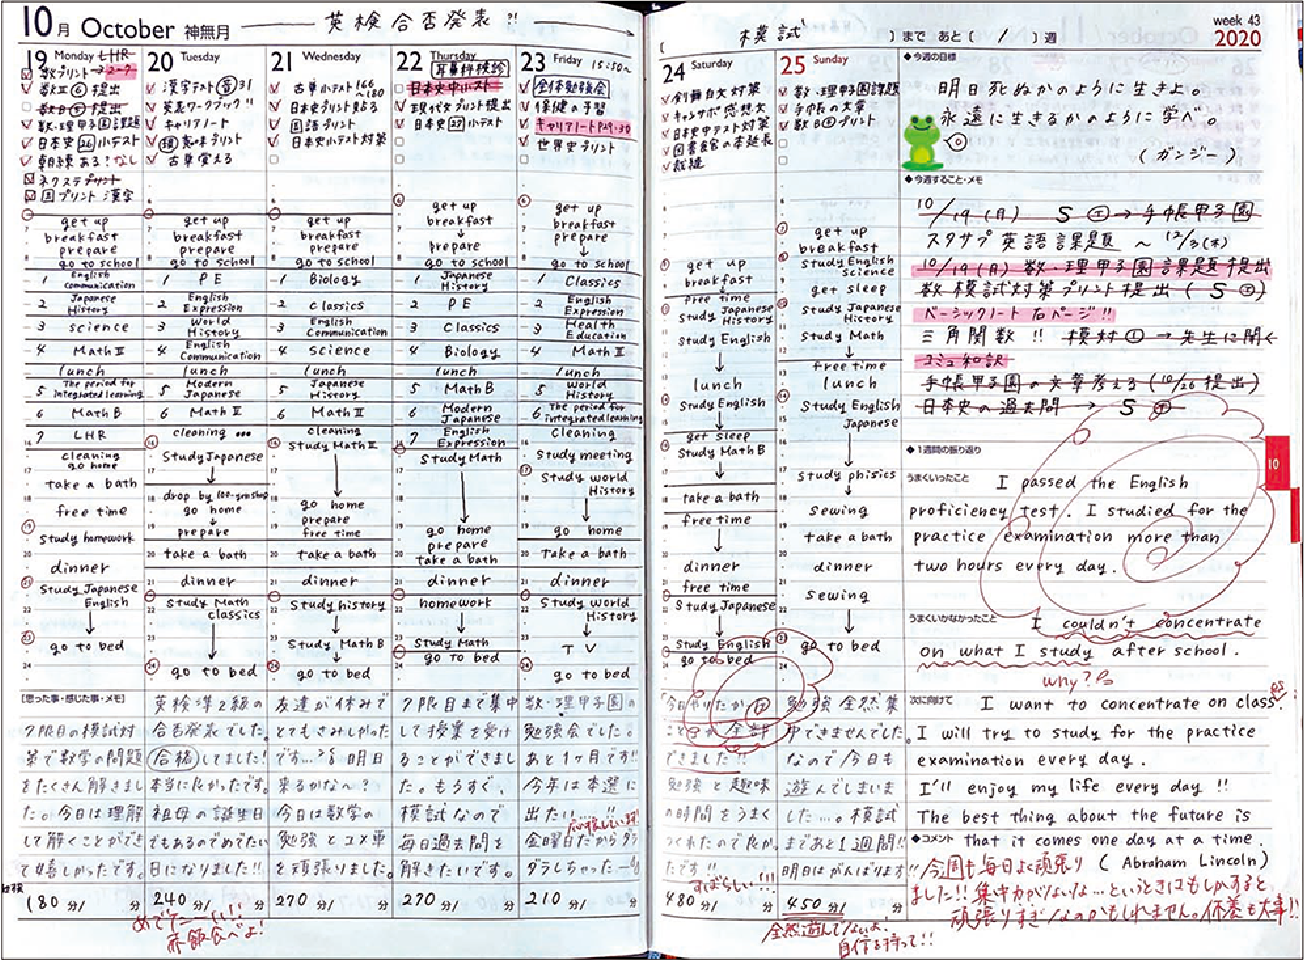 10月 October 神無月
英検合否発表 ?!
模試
まで あと ( / ) 週
week 43
2020
19 Monday
LHR
数プリント→2-7
数Ⅱ⑥提出
数・理甲子園課題
日本史26小テスト
朝練ある?なし
ネクステプリント
国プリント 漢字
get up
breakfast
prepare
go to school
1 English Communication
2 Japanese History
3 Science
4 Math Ⅱ
lunch
5 The period for integrated learning
6 Math B
7 LHR
cleaning
go home
take a bath
free time
Study homework
dinner
Study Japanese
English
go to bed
[思った事・感じた事・メモ]
7限目の模試対
策で数学の問題
をたくさん解きまし
た。今日は理解
して解くことができ
て嬉しかったです。
180分/ 分
20 Tuesday
漢字テスト 31
英表ワークブック!!
キャリアノート
古単覚える
get up
breakfast
prepare
go to school
1 PE
2 English Expression
3 World History
4 English Communication
lunch
5 Modern Japanese
6 Math Ⅱ
cleaning
Study Japanese
drop by 100-yen shop
go home
prepare
take a bath
dinner
Study Math
classics
go to bed
英検準2級の
合否発表でした。
合格してました!
本当に良かったです。
祖母の誕生日
でもあるのでめでたい
日になりました!!
240分/ 分
めでたーーい!!
赤飯食べよ!
21 Wednesday
古単小テスト166
~180
日本史プリント見る
国語プリント
日本史小テスト対策
get up
breakfast
prepare
go to school
1 Biology
2 classics
3 English Communication
4 Science
lunch
5 Japanese History
6 Math Ⅱ
cleaning
Study Math Ⅱ
go home
prepare
free time
take a bath
dinner
Study history
Study Math B
go to bed
友達が休みで
とてもさみしかった
です… 明日
来るかな〜?
今日は数学の
勉強とコメ単
を頑張りました。
270分/ 分
22 Thursday
耳鼻科検診
日本史小テスト
現代文プリント提出
日本史27小テスト
get up
breakfast
prepare
go to school
1 Japanese History
2 PE
3 Classics
4 Biology
lunch
5 Math B
6 Modern Japanese
7 English Expression
Study Math
go home
prepare
take a bath
dinner
homework
Study Math
go to bed
7限目まで集中
して授業を受け
ることができまし
た。もうすぐ、
模試なので
毎日過去問を
解きたいです。
270分/ 分
23 Friday 15:50~
全体勉強会
保健の予習
キャリアノートP29・30
世界史プリント
get up
breakfast
prepare
go to school
1 Classics
2 English Expression
3 Health Education
4 Math Ⅱ
lunch
5 World History
6 The period for integrated learning
cleaning
Study meeting
Study world
History
go home
Take a bath
dinner
Study world
History
TV
go to bed
数・理甲子園の
勉強会でした。
あと1ヶ月です!!
今年は本選に
出たい…!!
応援しています!
金曜日だからダラ
ダラしちゃった…
210分/ 分
24 Saturday
キャンサポ感想文
日本史テスト対策
図書館の本延長
裁縫
get up
breakfast
free time
Study Japanese
History
Study English
lunch
Study English
get sleep
Study Math B
take a bath
free time
dinner
free time
Study Japanese
Study English
go to bed
今日やりたかった
ことが全部
できました!!
勉強と趣味
の時間をうまく
つくれたので良かっ
たです!!
すばらしい!!!
480分/ 分
25 Sunday
数・理甲子園課題
手帳の文章
数B①プリント
get up
breakfast
Study English
science
get sleep
Study Japanese
History
Study Math
free time
lunch
Study English
Japanese
Study phisics
sewing
take a bath
dinner
sewing
go to bed
勉強全然集
中できませんでした。
なので今日も
遊んでしまいま
した…。模試
まであと1週間!!
明日はがんばります!!
450分/ 分
全然遊んでないよ。
自信を持って!!
◆今週の目標
明日死ぬかのように生きよ。
永遠に生きるかのように学べ。
(ガンジー)
◆今週すること・メモ
10/19(月) S → 手帳甲子園
スタサプ英語課題 ~ 12/3(木)
10/19(月) 数・理甲子園課題提出
数模試対策プリント提出(S)
ベーシックノート 右ページ!!
三角関数!! 模対① → 先生に聞く
コミュ和訳
手帳甲子園の文章考える(10/26提出)
日本史の過去問 → S
◆1週間の振り返り
うまくいったこと
I passed the English
proficiency test. I studied for the
practice examination more than
two hours every day.
うまくいかなかったこと
I couldn't concentrate
on what I study after school.
why?
次に向けて
I want to concentrate on class
es
I will try to study for the practice
examination every day.
I'll enjoy my life every day!!
The best thing about the future is
◆コメント
that it comes one day at a time.
(Abraham Lincoln)
今週も毎日よく頑張り
ました!! 集中力がないな…というときはもしかすると
頑張りすぎなのかもしれません。休養も大事!!
10